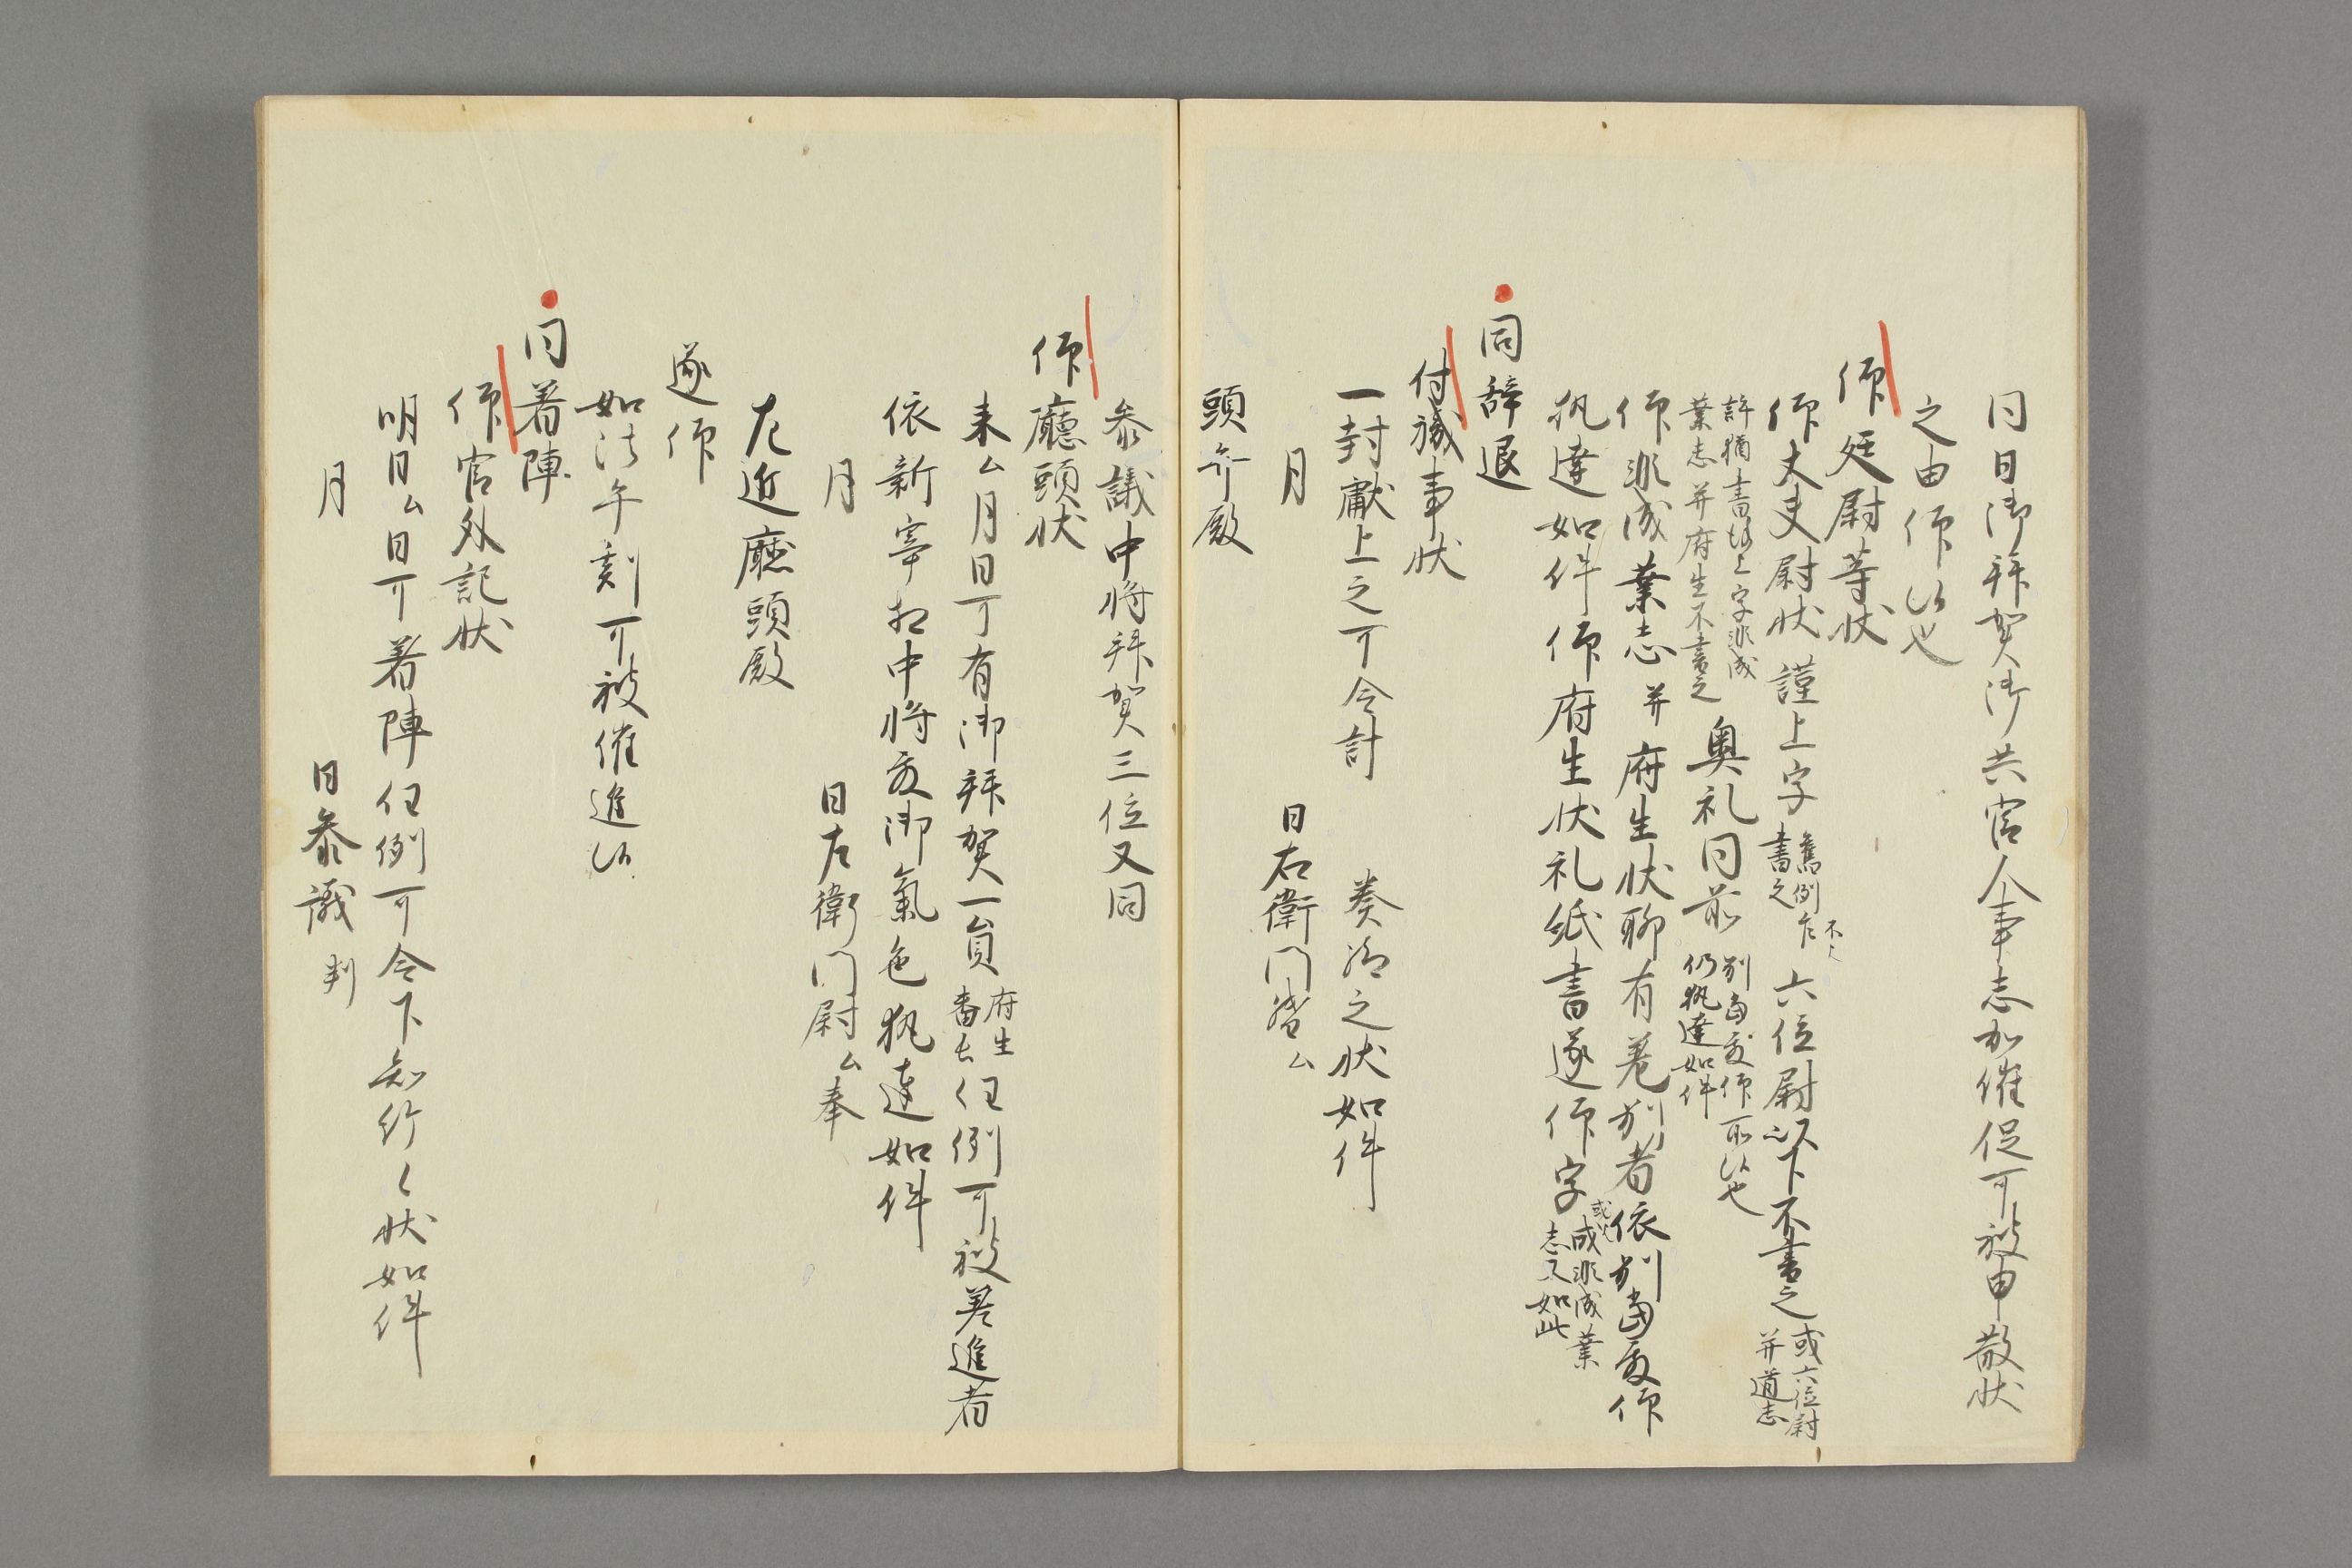 同日御拝賀御共官人事志加催促可被申散状
之由仰候也
仰廷尉等状
仰大夫尉状謹上字 旧例不
書之 六位尉以下不書之 或六位尉
并道志
許猶書謹上字非成
業志并府生不書之 奥礼同前 別当殿仰所候也
仍執達如件
仰非成業志并府生状聊有差別者依別当殿仰
執達如件仰府生状礼紙書遂仰字 或成非成業
志又如此
同辞退
付職事状
一封献上之可令計 奏給之状如件
月 日右衛門督ム
頭弁殿
参議中将拝賀三位又同
仰庁頭状
来ム月日可有御拝賀一員 府生
番長 任例可被差進者
依新宰相中将殿御気色執達如件
月 日左衛門尉ム奉
左近庁頭殿
遂仰
如法午刻可被催進候
同着陣
仰官外記状
明日ム日可着陣任例可令下知行々状如件
月 日参議判